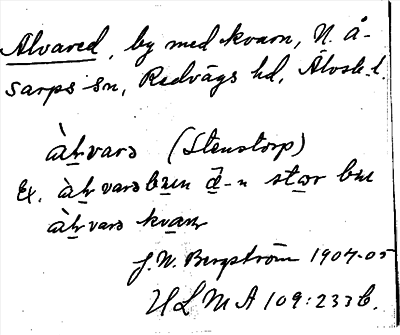 Alvared, by med kvarn, N. Å-
sarps sn, Redvägs hd, Älvsb. l.
àh̠varə (Stenstorp)
Ex. àh̠varəbn̠en -n stor by
àh̠varə kvan̠
J. N. Bergström 1904-05
ULMA 109:233b.